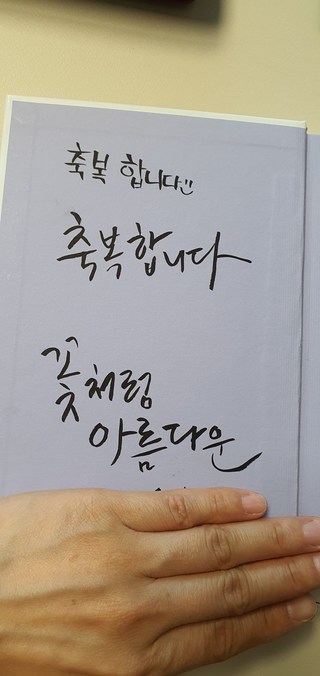 축복 합니다!!
축복합니다
꽃처럼
아름다운